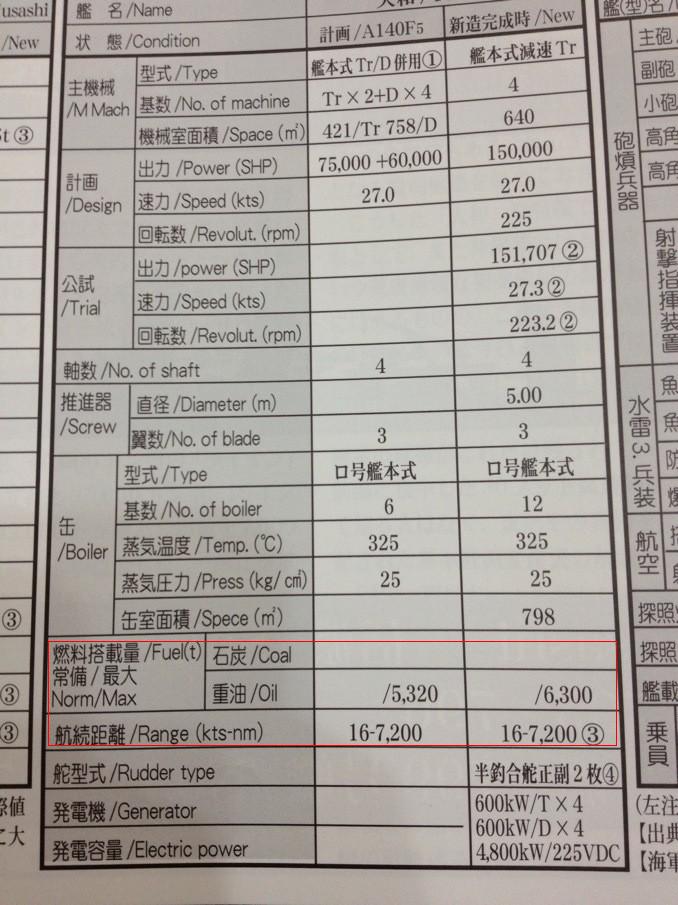 艦 名/Name
状 態/Condition 計画/A140F5 新造完成時/New
主機械/M Mach 型式/Type 艦本式Tr/D併用① 艦本式減速Tr
基数/No. of machine Tr×2+D×4 4
機械室面積/Space (㎡) 421/Tr 758/D 640
計画/Design 出力/Power (SHP) 75,000+60,000 150,000
速力/Speed (kts) 27.0 27.0
回転数/Revolut. (rpm) 225
公試/Trial 出力/power (SHP) 151,707②
速力/Speed (kts) 27.3②
回転数/Revolut. (rpm) 223.2②
軸数/No. of shaft 4 4
推進器/Screw 直径/Diameter (m) 5.00
翼数/No. of blade 3 3
缶/Boiler 型式/Type ロ号艦本式 ロ号艦本式
基数/No. of boiler 6 12
蒸気温度/Temp. (℃) 325 325
蒸気圧力/Press (kg/c㎡) 25 25
缶室面積/Spece (㎡) 798
燃料搭載量/Fuel(t) 常備/最大 Norm/Max 石炭/Coal
重油/Oil /5,320 /6,300
航続距離/Range (kts-nm) 16-7,200 16-7,200③
舵型式/Rudder type 半釣合舵正副2枚④
発電機/Generator 600kW/T×4
600kW/D×4
発電容量/Electric power 4,800kW/225VDC
usashi
/New
③
③
③
③
艦(型)名/
主砲
副砲
小砲
高角
高角
砲熕兵器
射撃指揮装置
水雷3.兵装
航空
探照
探照
艦載
乗員
(左注
【出典
【海軍